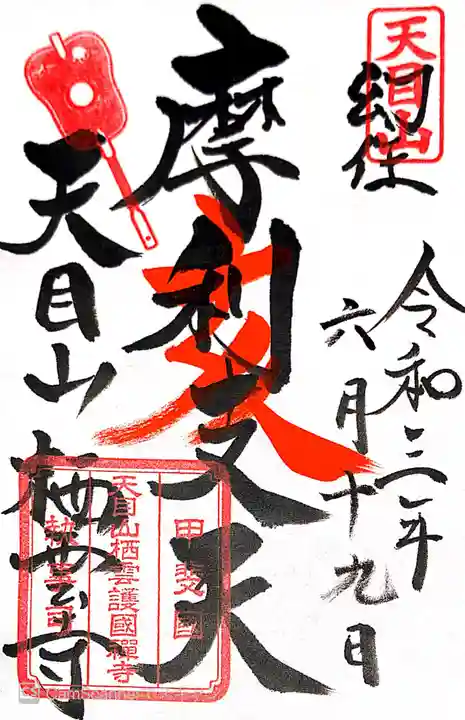 天目山
令和三年
六月十九日
摩利支天
天目山栖雲寺
甲斐國
天目山栖雲護國禪寺
CamScanner